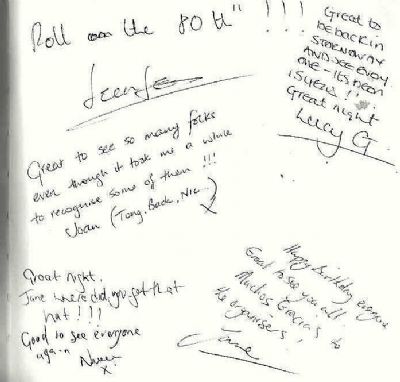 Roll on the 80th" !!!
Great to
be back in
STORNOWAY
AND SEE EVERY
ONE - ITS BEEN
15 YEARS!!
Great night
Lucy G.
Great to see so many folks
even though it took me a while
to recognise some of them !!!
Joan (Tong, Back, Nic...)
X
Great night.
Jane where did you get that
hat!!!
Good to see everyone
again
X
Happy Birthday everyone
Good to see you all
Muchos Gracias to
the organisers,